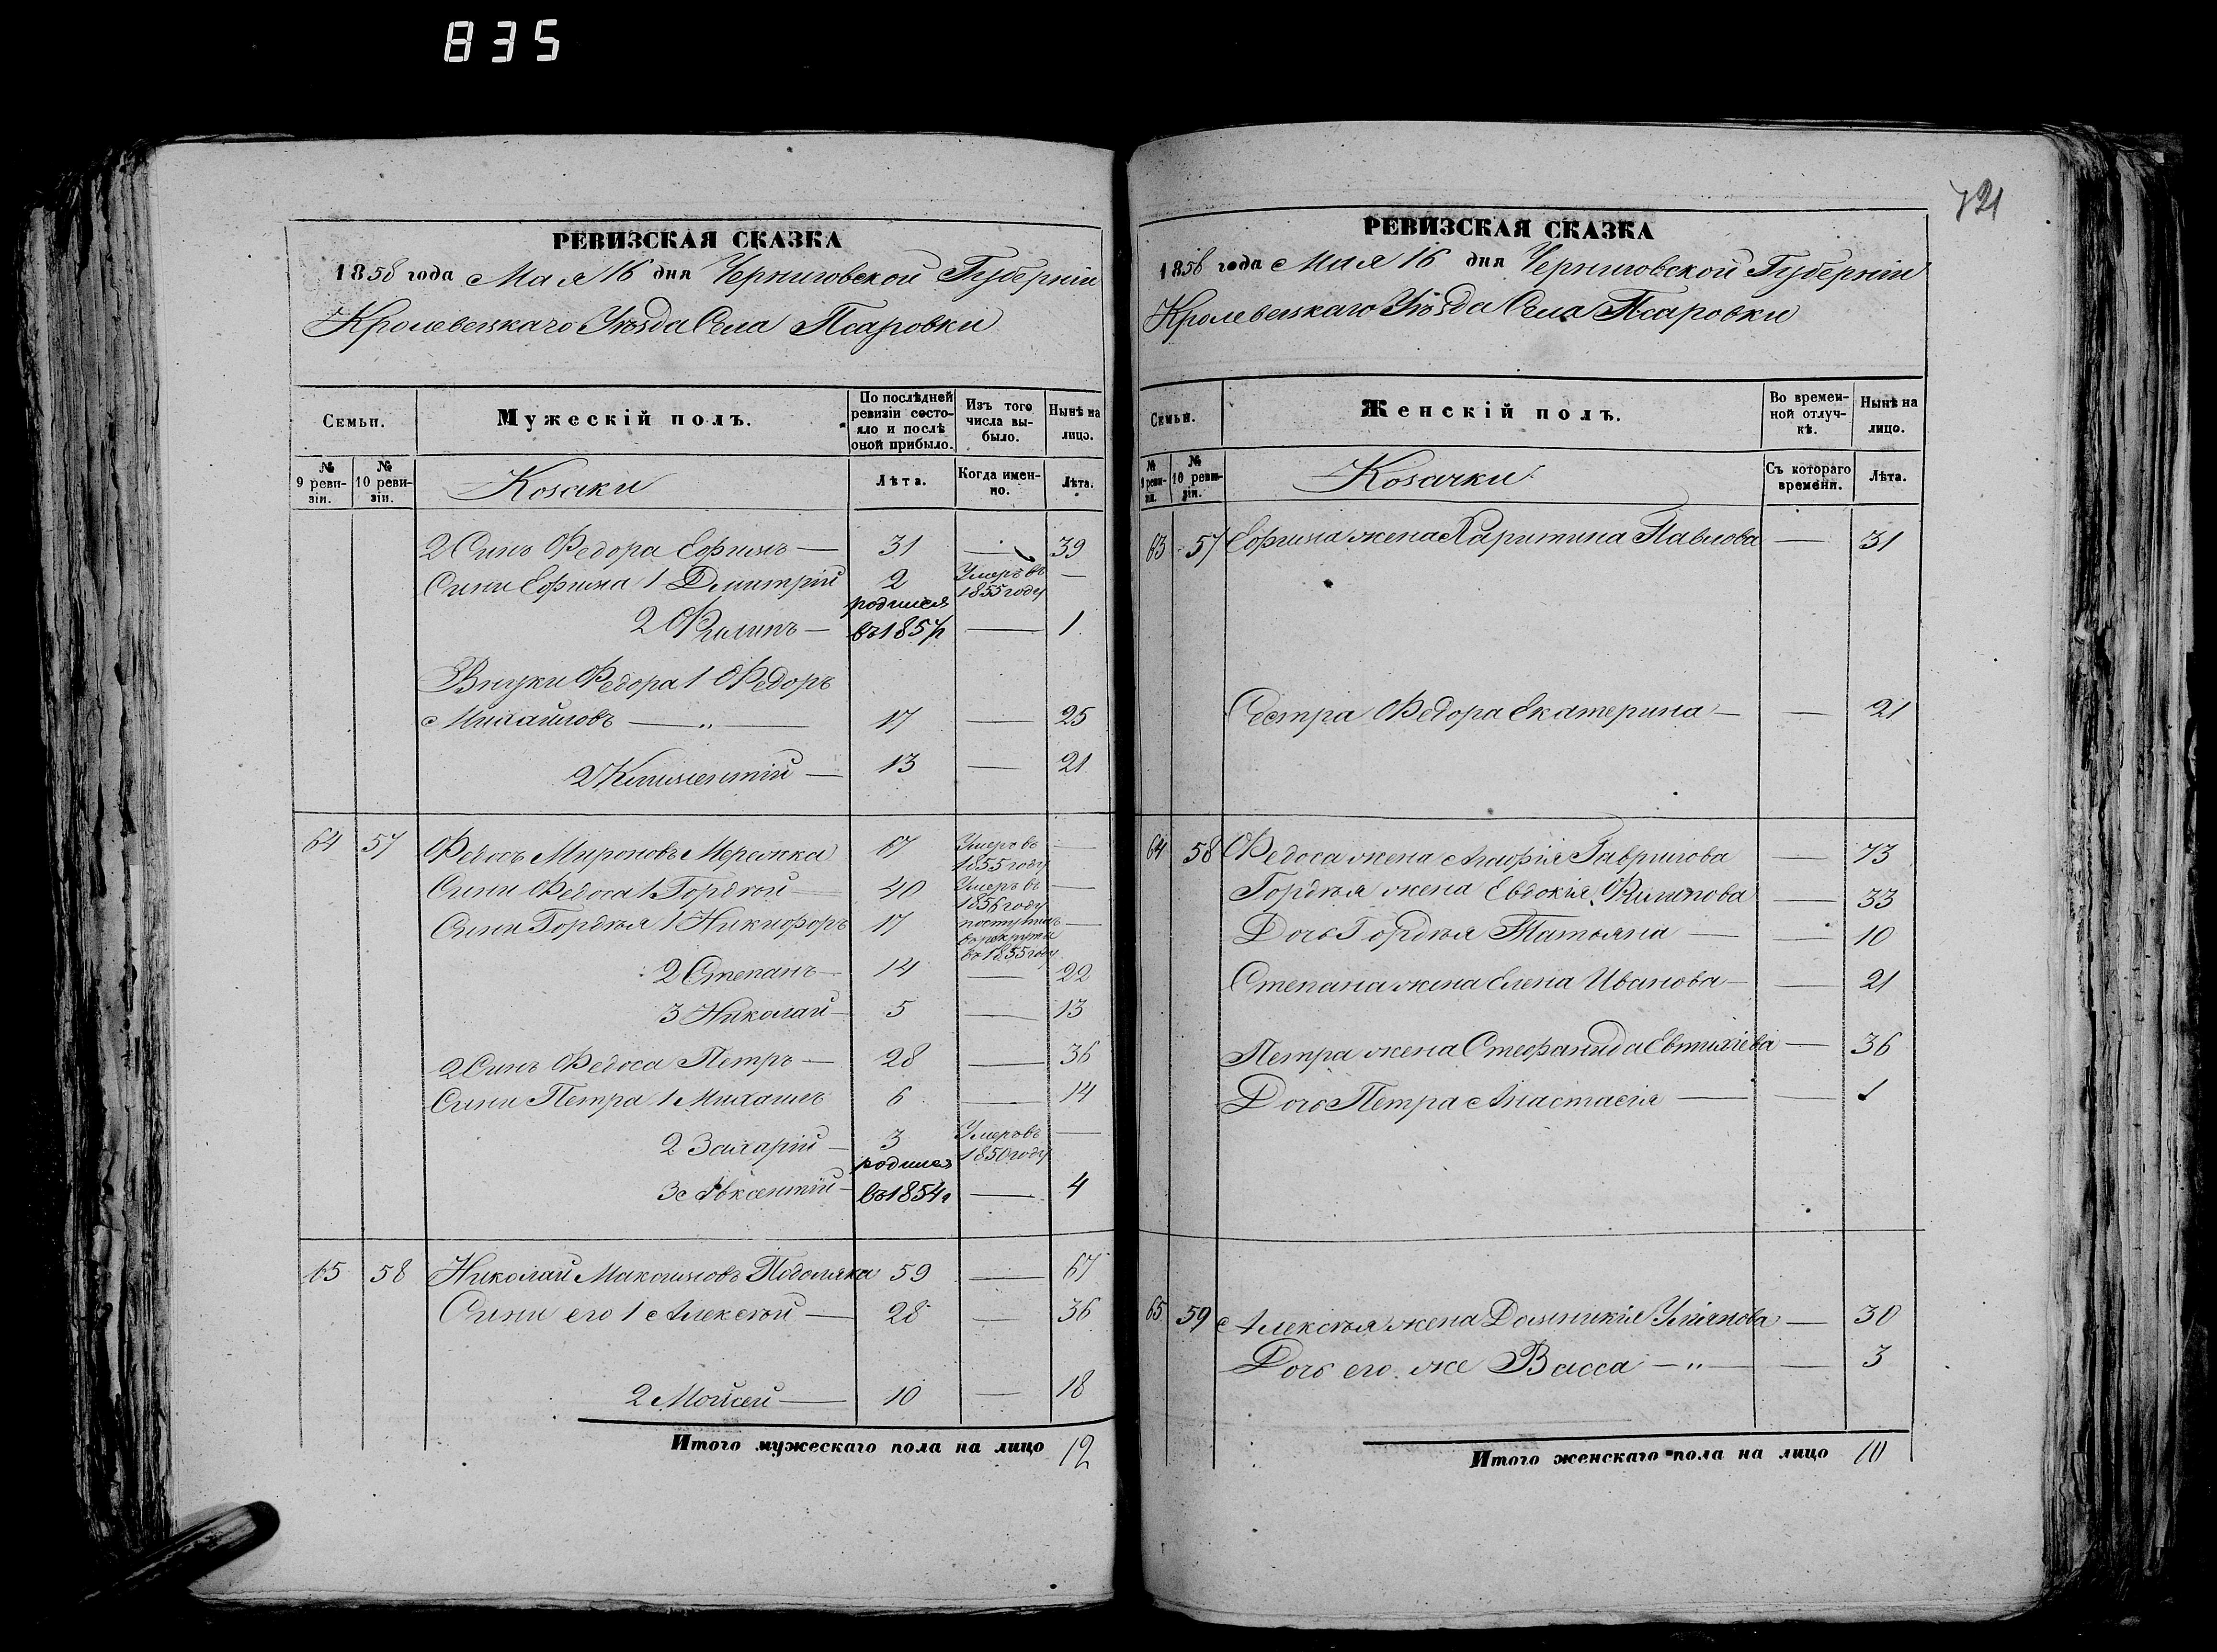 835
721
РЕВИЗСКАЯ СКАЗКА
1858 года Мая 16 дня Черниговской Губерніи
Кролевецкаго Уѣзда Села Псаровки
Семьи.
Мужескій полъ.
По послѣдней ревизіи состояло и послѣ оной прибыло.
Изъ того числа выбыло.
Нынѣ на лицо.
№ 9 ревизіи.
№ 10 ревизіи.
Козаки
Лѣта.
Когда именно.
Лѣта.
2 Синъ Федора Ефимъ — 31 — 39
Сини Ефима 1 Дмитрій 2 Умеръ въ 1855 году —
2 Филипъ — родился въ 1857 г — 1
Внуки Федора 1 Федоръ
Михайловъ — „ — 17 — 25
2 Климентий — 13 — 21
64 57 Федосъ Мироновъ Мережка 67 Умеръ въ 1855 году —
Сини Федоса 1 Гордѣй — 40 Умеръ въ 1856 году —
Сини Гордѣя 1 Никифоръ 17 поступилъ в рекруты въ 1855 году —
2 Степанъ — 14 — 22
3 Николай — 5 — 13
2 Синъ Федоса Петръ — 28 — 36
Сини Петра 1 Михаилъ 6 — 14
2 Захарій — 3 Умеръ въ 1850 году —
3 Авксентій — родился въ 1854 г — 4
65 58 Николай Максимовъ Подоляка 59 — 67
Сини его 1 Алексѣй — 28 — 36
2 Мойсей — 10 — 18
Итого мужескаго пола на лицо 12
РЕВИЗСКАЯ СКАЗКА
1858 года Мая 16 дня Черниговской Губерніи
Кролевецкаго Уѣзда Села Псаровки
Семьи.
Женскій полъ.
Во временной отлучкѣ.
Нынѣ на лицо.
№ 9 ревизіи.
№ 10 ревизіи.
Козачки
Съ котораго времени.
Лѣта.
63 57 Ефима жена Харитина Павлова — 31
Сестра Федора Екатерина — — 21
64 58 Федоса жена Агафія Гаврилова — 73
Гордѣя жена Евдокія Филипова — 33
Дочь Гордѣя Татьяна — — 10
Степана жена Елена Иванова — — 21
Петра жена Стефанида Евтихіева — 36
Дочь Петра Анастасія — — 1
65 59 Алексѣя жена Домникія Уліянова — 30
Дочь его же Васса — „ — — 3
Итого женскаго пола на лицо 10